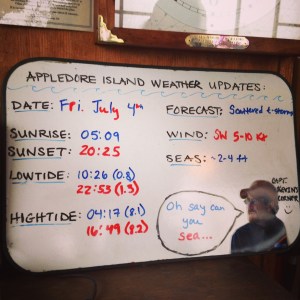 APPLEDORE ISLAND WEATHER UPDATES:
DATE: Fri. July 4th
SUNRISE: 05:09
SUNSET: 20:25
LOWTIDE: 10:26 (0.8)
22:53 (1.3)
HIGHTIDE: 04:17 (8.1)
16:49 (8.2)
FORECAST: Scattered t-storms
WIND: SW 5-10 kt
SEAS: ~2-4 ft
CAPT. KEVIN'S CORNER
Oh say can
you
sea...